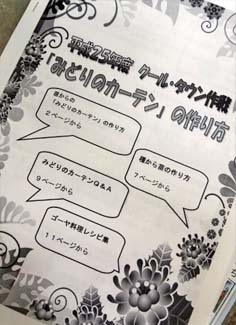 平成25年度　クール・タウン作戦
「みどりのカーテン」の作り方
苗からの
「みどりのカーテン」の作り方
2ページから
種から苗の作り方
7ページから
みどりのカーテンQ＆A
9ページから
ゴーヤ料理レシピ集
11ページから